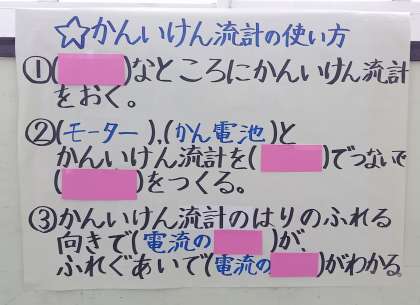 ☆かんいけん流計の使い方
①( )なところにかんいけん流計
をおく。
②(モーター),(かん電池)と
かんいけん流計を( )でつないで
( )をつくる。
③かんいけん流計のはりのふれる
向きで(電流の )が、
ふれぐあいで(電流の )がわかる。